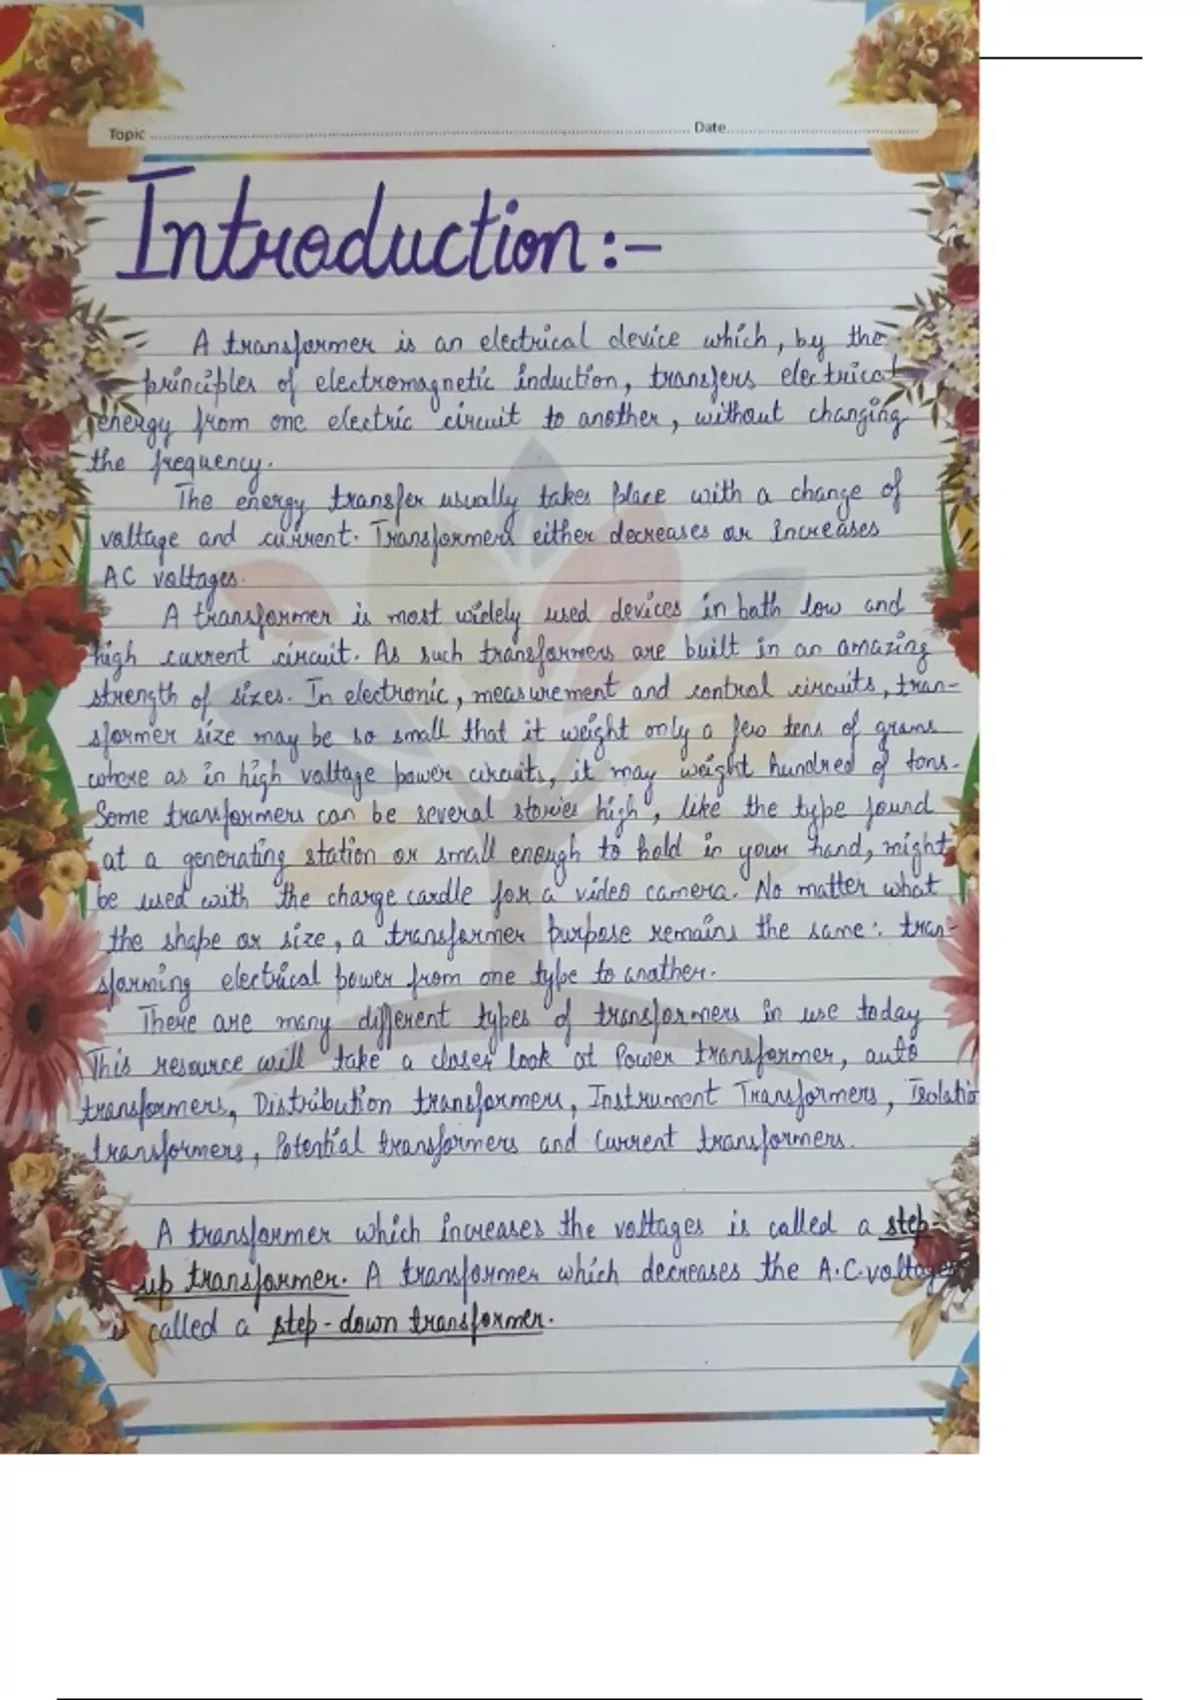 Topic
Date
Introduction:-
A transformer is an electrical device which, by the
principles of electromagnetic induction, transfers electrical
energy from one electric circuit to another, without changing
the frequency.
The energy transfer usually takes place with a change of
voltage and current. Transformers either decreases or increases
AC voltages.
A transformer is most widely used devices in both low and
high current circuit. As such transformers are built in an amazing
strength of sizes. In electronic, measurement and control circuits, tran-
sformer size may be so small that it weight only a few tens of grams
where as in high voltage power circuits, it may weight hundred of tons.
Some transformers can be several stories high, like the type found
at a generating station or small enough to hold in your hand, might
be used with the charge cardle for a video camera. No matter what
the shape or size, a transformer purpose remains the same: tran-
sforming electrical power from one type to another.
There are many different types of transformers in use today
This resource will take a closer look at Power transformer, auto
transformers, Distribution transformers, Instrument Transformers, Isolatio
transformers, Potential transformers and Current transformers.
A transformer which increases the voltages is called a step-
up transformer. A transformer which decreases the A.C. voltages
is called a step-down transformer.